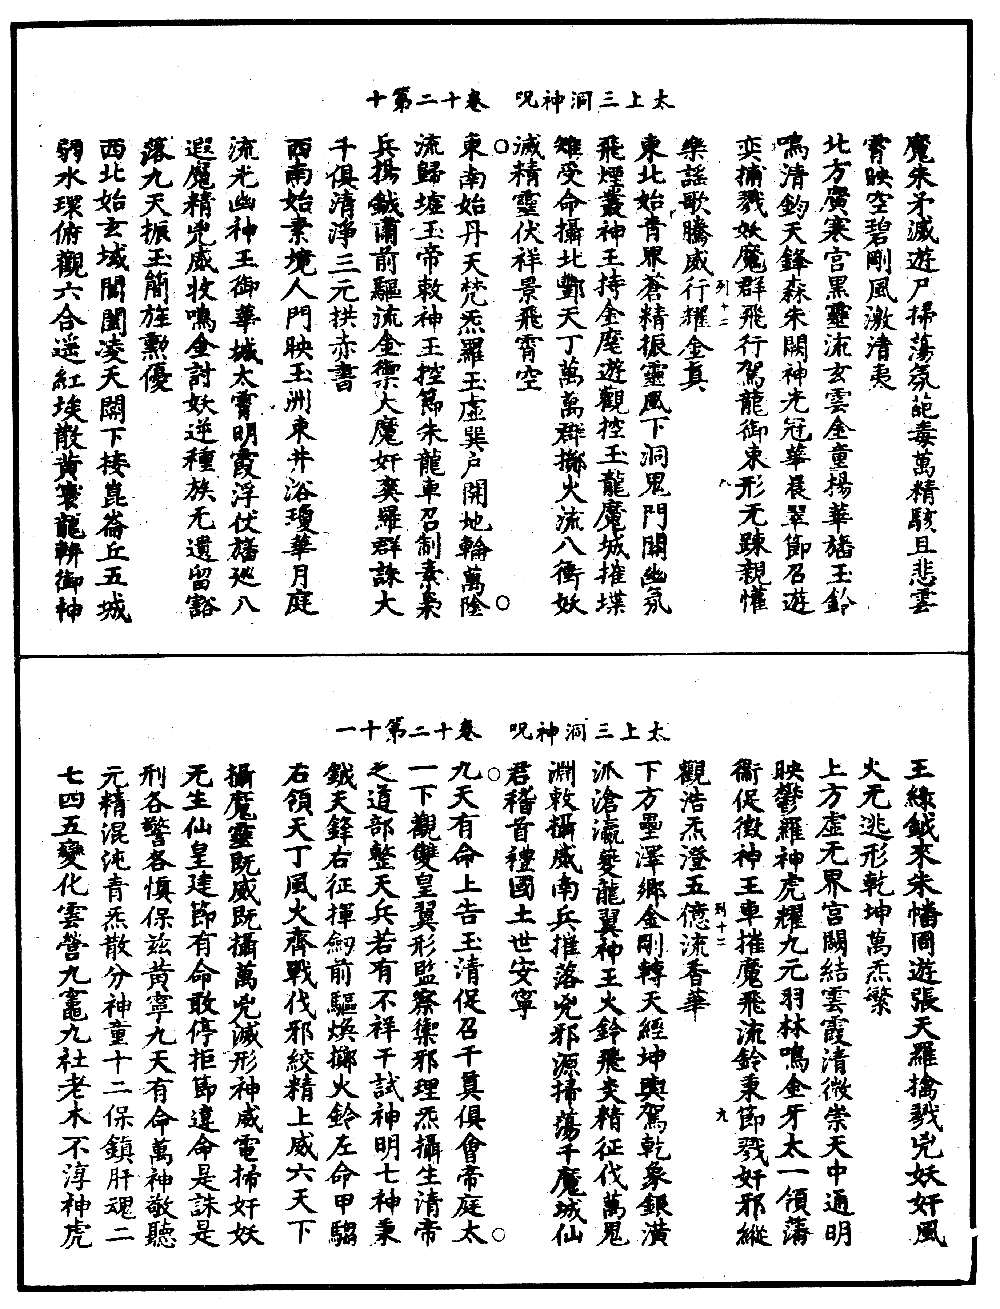 太上三洞神咒　卷十二第十
魔朱矛滅遊尸掃蕩氛葩毒萬精駭且悲雲
霄映空碧剛風激渚夷
北方廣寒宮黑靈流玄雲金童揚華旛玉鈴
鳴清鈞天鋒森朱闕神光冠華晨翠節召遊
奕捕戮妖魔群飛行駕龍御東形无踈親懽
樂謠歌騰威行耀金真
東北始青界蒼精振靈風下洞鬼門關幽氛
飛煙叢神王持金麾遊觀控玉龍魔城摧堞
雉受命攝北酆天丁萬萬群擲火流八衝妖
滅精靈伏祥景飛霄空
東南始丹天梵炁羅玉虛巽户開地輪萬陰
流歸墟玉帝敕神王控節朱龍車召制素梟
兵揚鉞肅前驅流金禦大魔奸衺羅群誅大
千俱清淨三元拱赤書
西南始素境人門映玉洲東井浴瓊華月庭
流光幽神王御華城太霄明霞浮伏旛廵八
遐魔精兇威收鳴金討妖逆種族无遺留豁
落九天振玉簡旌勳優
西北始玄城閶闔凌天關下接崑崙丘五城
弱水環俯觀六合遥紅埃散黃寰龍輧御神
列十二
八
太上三洞神咒　卷十二第十一
王綠鉞來朱幡周遊張天羅擒戮兇妖奸風
火无逃形乾坤萬炁繁
上方虛无界宮闕結雲霞清微崇天中通明
映鬱羅神虎耀九元羽林鳴金牙太一領蕩
衛促徵神王車摧魔飛流鈴秉節戮奸邪縱
觀浩炁澄五億流香華
下方壘澤鄉金剛轉天經坤輿駕乾象銀潢
派滄瀛夔龍翼神王火鈴飛炎精征伐萬鬼
淵敕攝威南兵摧落兇邪源掃蕩千魔城仙
君稽首禮國土世安寧
九天有命上告玉清促召千真俱會帝庭太
一下觀雙皇翼形監察禦邪理炁攝生清帝
之道部整天兵若有不祥干試神明七神秉
鉞天鋒右征揮劒前驅煥擲火鈴左命甲騶
右領天丁風火齊戰伐邪絞精上威六天下
攝魔靈旣威旣攝萬兇滅形神威電掃奸妖
无生仙皇建節有命敢停拒節違命是誅是
刑各警各慎保茲黃寧九天有命萬神敬聽
元精混沌青炁散分神童十二保鎮肝魂二
七四五變化雲營九竈九社老木不淳神虎
列十二
九